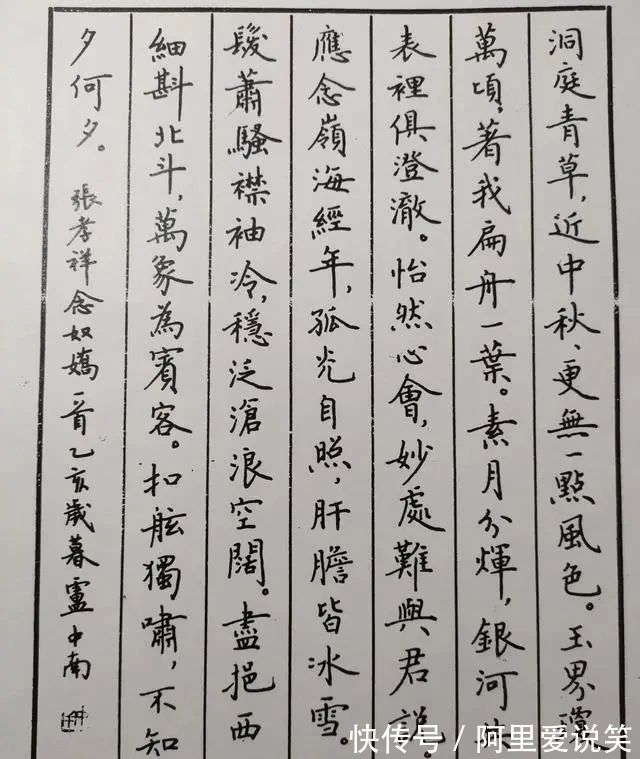 洞庭青草,近中秋、更無一點風色。玉界瓊
萬頃。著我扁舟一葉。素月分輝,銀河共
表裡俱澄澈。怡然心會,妙處難與君說。
應念嶺海經年,孤光自照,肝膽皆冰雪。
髮蕭騷襟袖冷,穩泛滄浪空闊。盡挹西
細斟北斗,萬象為賓客。扣舷獨嘯,不知
夕何夕。張孝祥念奴嬌一首乙亥歲暮盧中南
快传号/阿里爱说笑